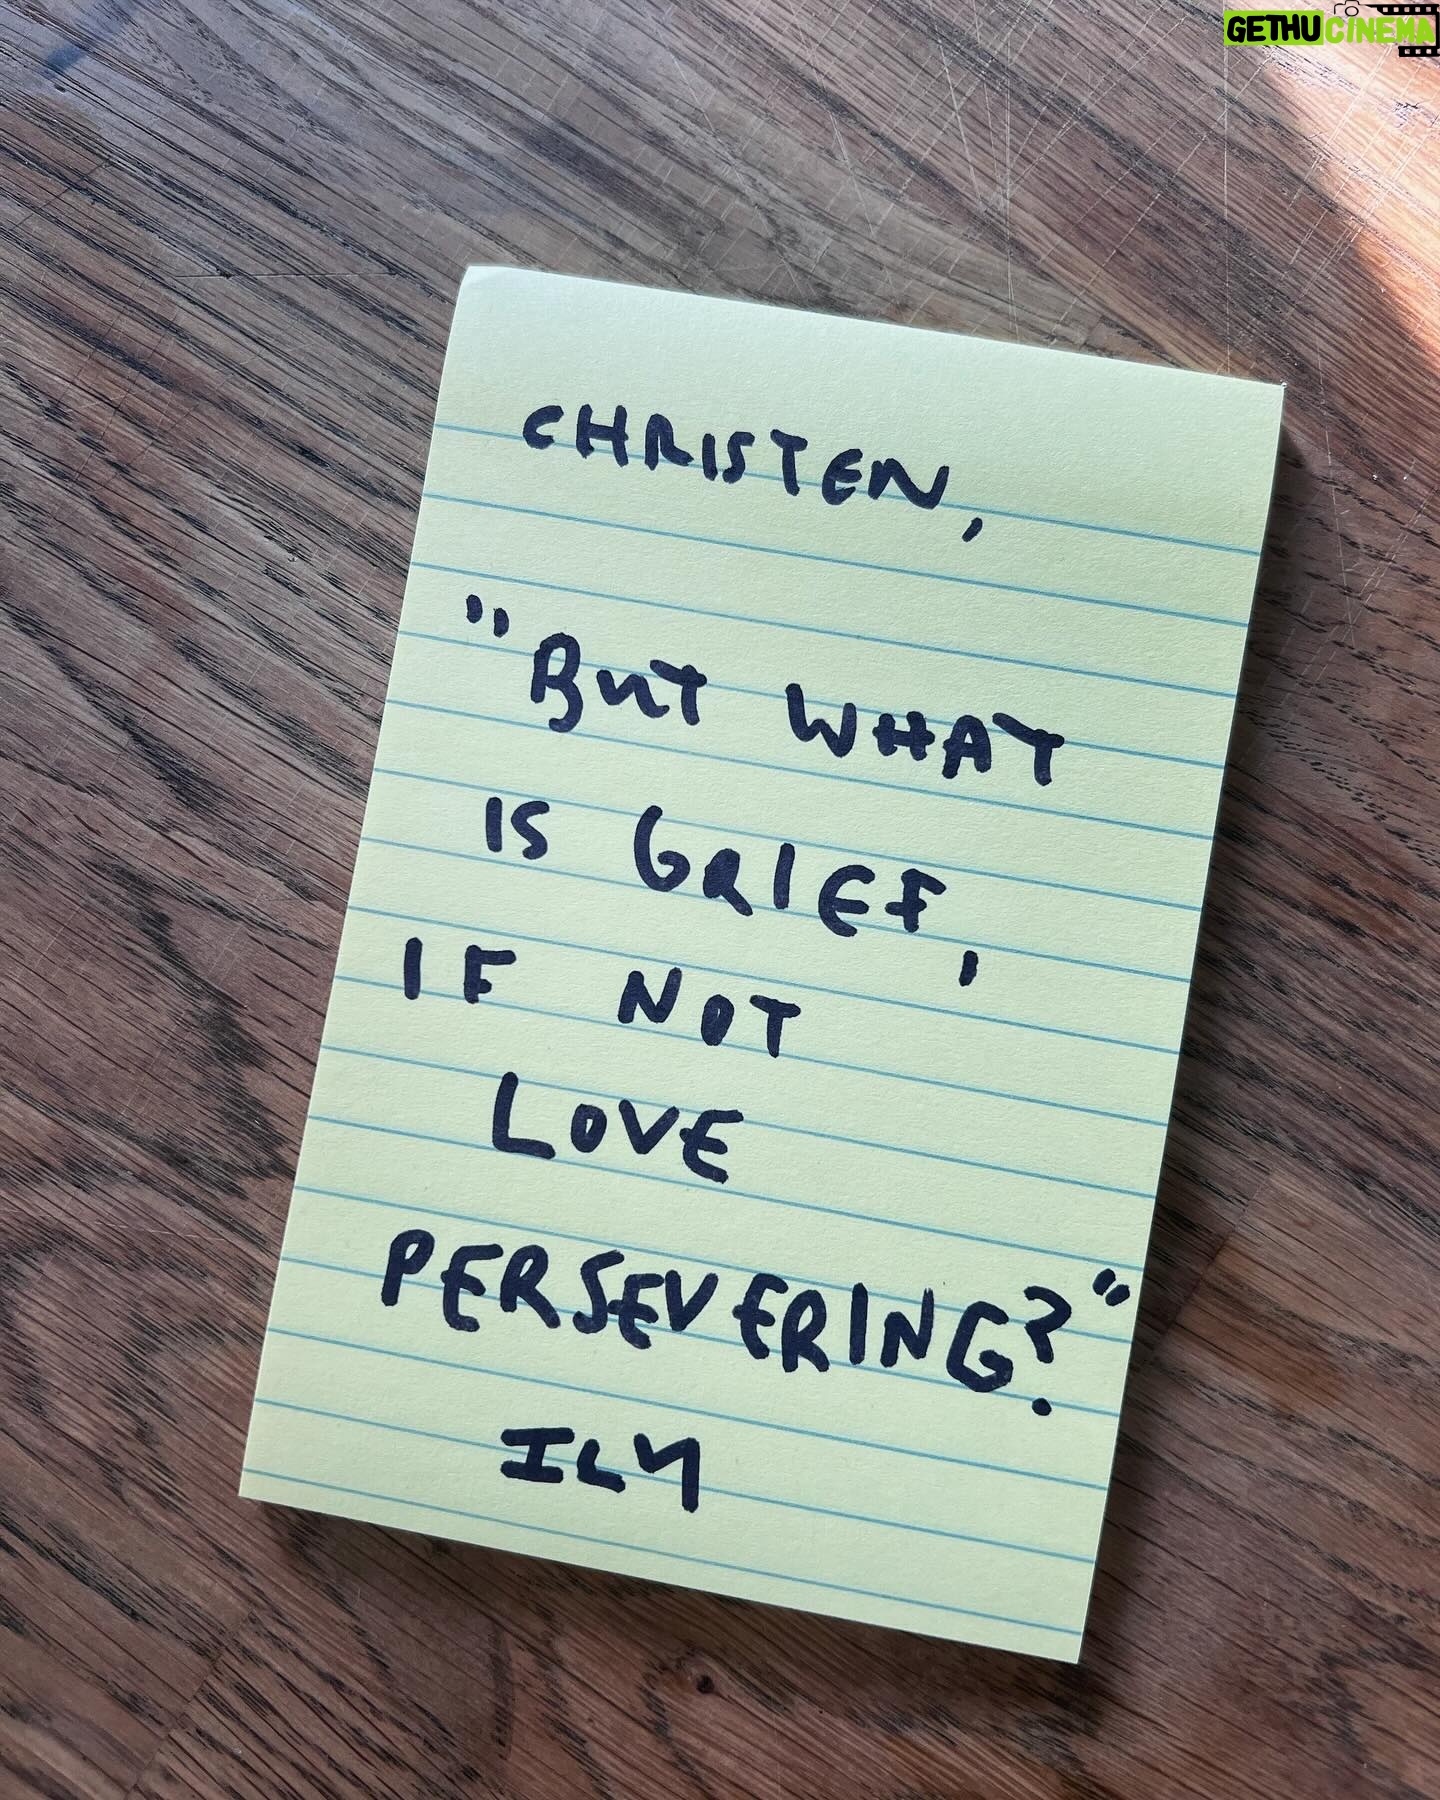 GETHUCINEMA
CHRISTEN,
"BUT WHAT
IS GRIEF,
IF NOT
LOVE
PERSEVERING?"
ILY